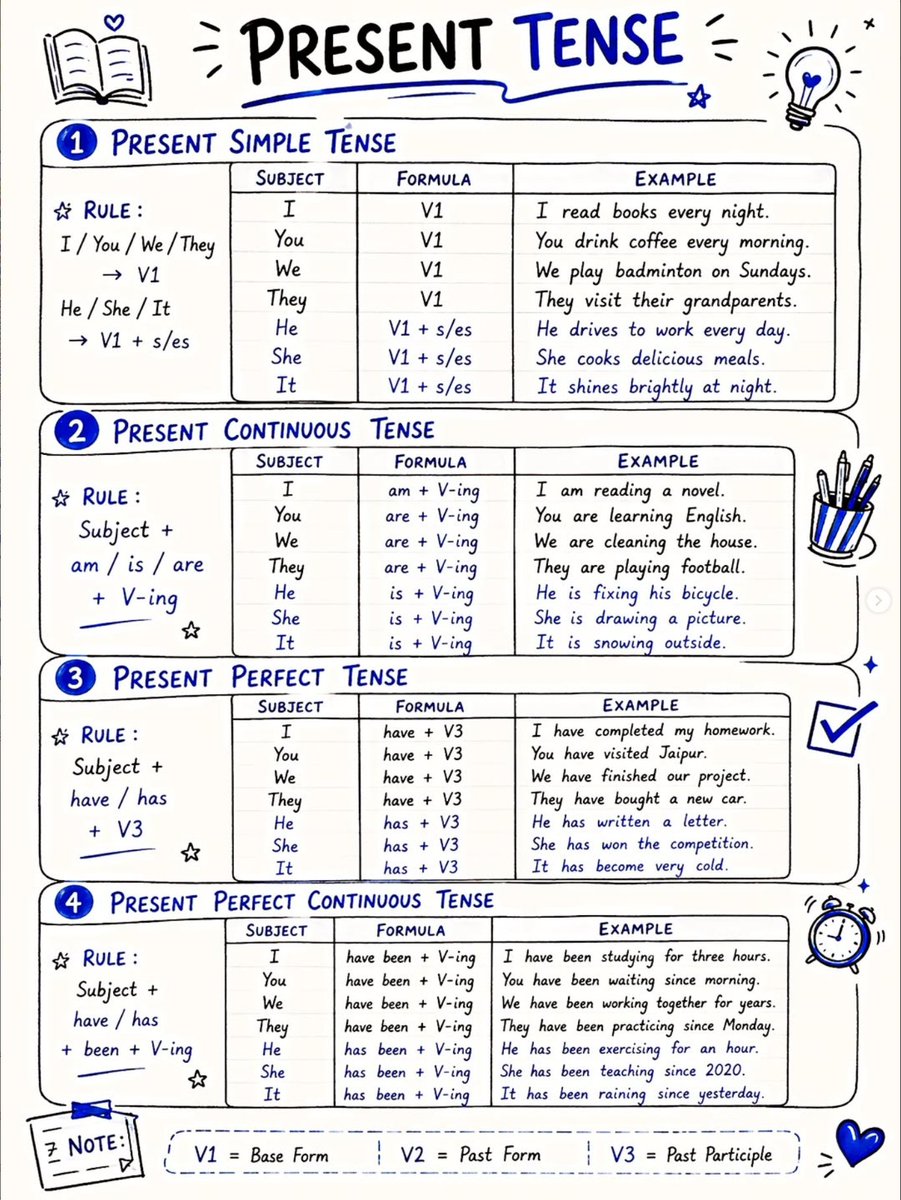 PRESENT TENSE
1 PRESENT SIMPLE TENSE
RULE :
I / You / We / They
→ V1
He / She / It
→ V1 + s/es
SUBJECT FORMULA EXAMPLE
I V1 I read books every night.
You V1 You drink coffee every morning.
We V1 We play badminton on Sundays.
They V1 They visit their grandparents.
He V1 + s/es He drives to work every day.
She V1 + s/es She cooks delicious meals.
It V1 + s/es It shines brightly at night.
2 PRESENT CONTINUOUS TENSE
RULE :
Subject +
am / is / are
+ V-ing
SUBJECT FORMULA EXAMPLE
I am + V-ing I am reading a novel.
You are + V-ing You are learning English.
We are + V-ing We are cleaning the house.
They are + V-ing They are playing football.
He is + V-ing He is fixing his bicycle.
She is + V-ing She is drawing a picture.
It is + V-ing It is snowing outside.
3 PRESENT PERFECT TENSE
RULE :
Subject +
have / has
+ V3
SUBJECT FORMULA EXAMPLE
I have + V3 I have completed my homework.
You have + V3 You have visited Jaipur.
We have + V3 We have finished our project.
They have + V3 They have bought a new car.
He has + V3 He has written a letter.
She has + V3 She has won the competition.
It has + V3 It has become very cold.
4 PRESENT PERFECT CONTINUOUS TENSE
RULE :
Subject +
have / has
+ been + V-ing
SUBJECT FORMULA EXAMPLE
I have been + V-ing I have been studying for three hours.
You have been + V-ing You have been waiting since morning.
We have been + V-ing We have been working together for years.
They have been + V-ing They have been practicing since Monday.
He has been + V-ing He has been exercising for an hour.
She has been + V-ing She has been teaching since 2020.
It has been + V-ing It has been raining since yesterday.
NOTE:
V1 = Base Form V2 = Past Form V3 = Past Participle